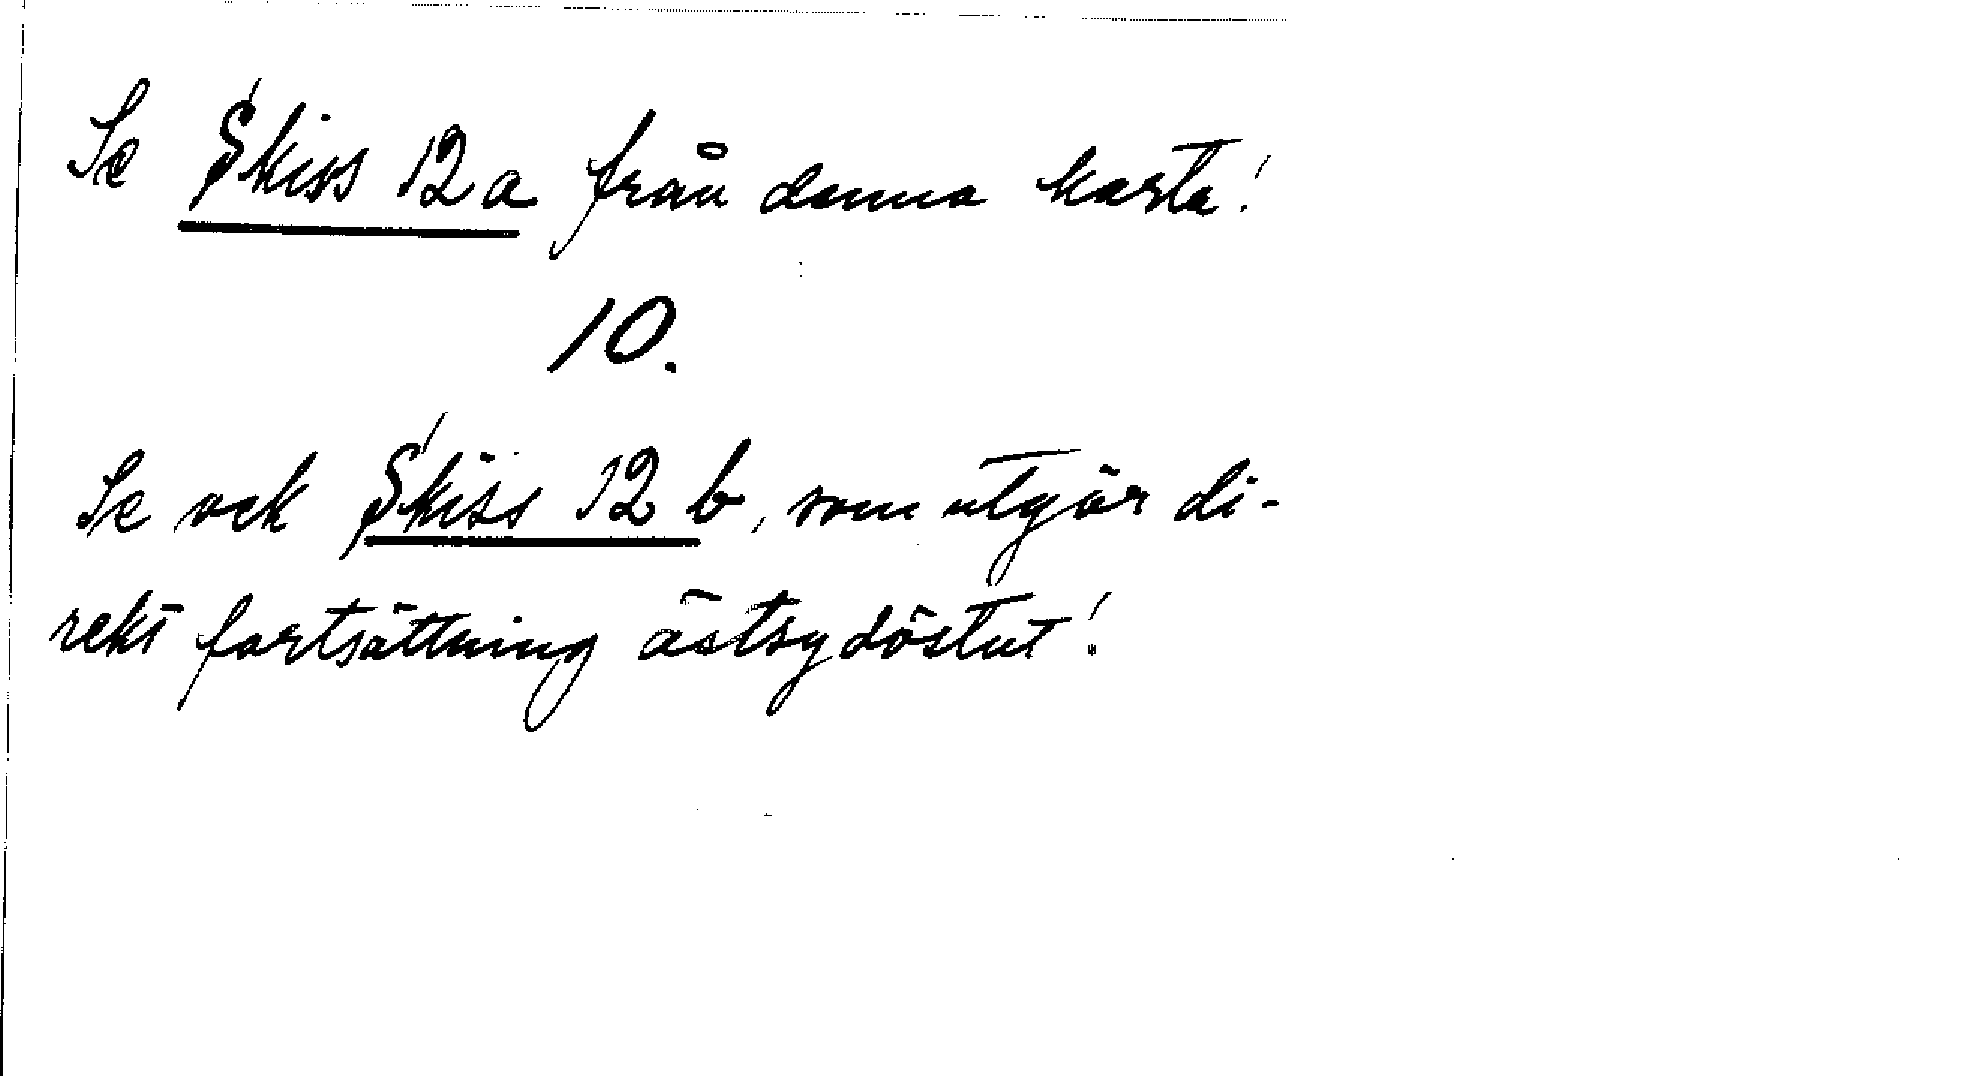 Se Skiss 12a från denna karta!
10.
Se ock Skiss 12 b, som utgör di-
rekt fortsättning östsydöstut!